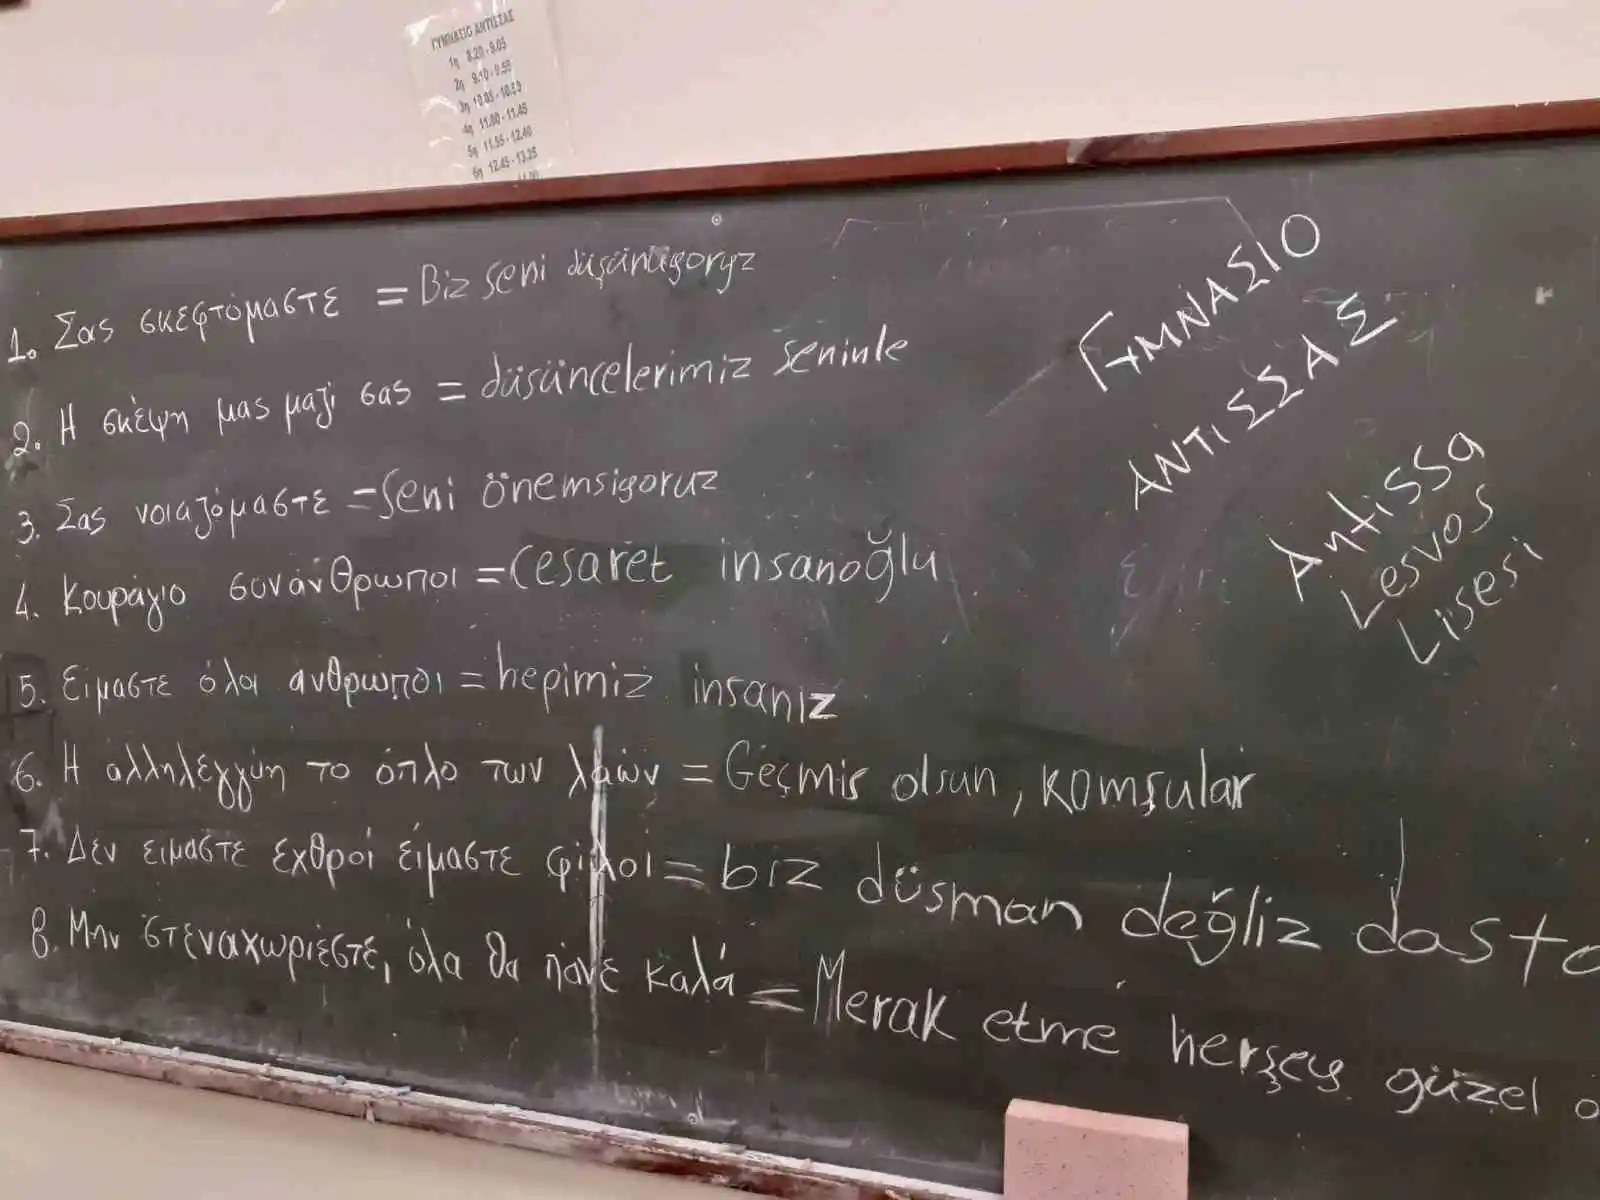 ΓΥΜΝΑΣΙΟ ΑΝΤΙΣΣΑΣ
1η 8.20 - 9.05
2η 9.10 - 9.55
3η 10.05 - 10.50
4η 11.00 - 11.45
5η 11.55 - 12.40
6η 12.45 - 13.25
1. Σας σκεφτόμαστε = Biz seni düşünüyoruz
2. Η σκέψη μας μαζί σας = düşüncelerimiz seninle
3. Σας νοιαζόμαστε = Seni önemsiyoruz
4. Κουράγιο συνάνθρωποι = Cesaret insanoğlu
5. Είμαστε όλοι άνθρωποι = hepimiz insanız
6. Η αλληλεγγύη το όπλο των λαών = Geçmis olsun, komşular
7. Δεν ειμαστε εχθροί είμαστε φίλοι = biz düsman değliz dasto
8. Μην στεναχωριέστε, όλα θα πάνε καλά = Merak etme herşey güzel o
ΓΥΜΝΑΣΙΟ
ΑΝΤΙΣΣΑΣ
Antissa
Lesvos
Lisesi